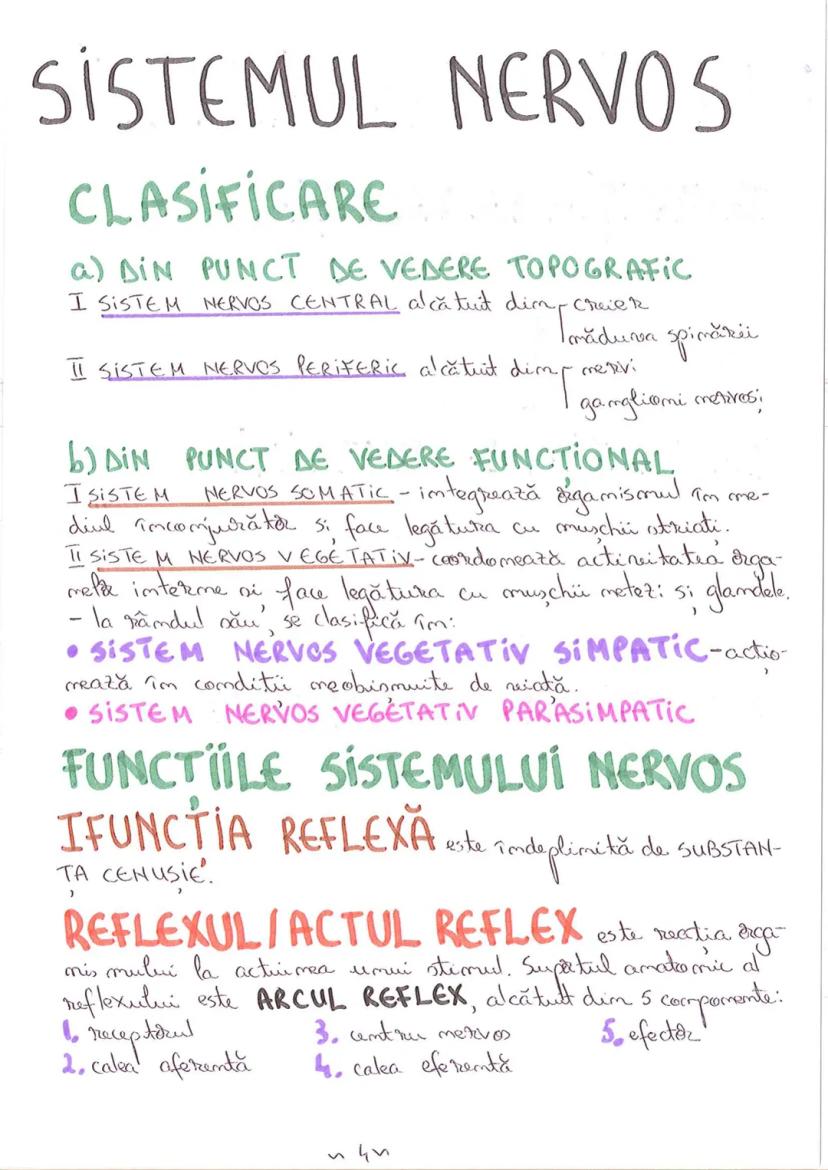 SISTEMUL NERVOS
CLASIFICARE
a) DIN PUNCT DE VEDERE TOPOGRAFIC
I SISTEM NERVOS CENTRAL alcătuit din creier
măduva spinării
II SISTEM NERVOS PERIFERIC alcătuit din nervi
ganglioni nervoși
b) DIN PUNCT DE VEDERE FUNCȚIONAL
I SISTEM NERVOS SOMATIC - integrează organismul în me-
diul înconjurător și face legătura cu mușchii striați.
II SISTEM NERVOS VEGETATIV - coordonează activitatea orga-
nelor interne și face legătura cu mușchii netezi și glandele.
- la rândul său, se clasifică în:
• SISTEM NERVOS VEGETATIV SIMPATIC - acțio-
nează în condiții neobișnuite de viață.
• SISTEM NERVOS VEGETATIV PARASIMPATIC
FUNCȚIILE SISTEMULUI NERVOS
I FUNCȚIA REFLEXĂ este îndeplinită de SUBSTAN-
ȚA CENUȘIE.
REFLEXUL / ACTUL REFLEX este reacția orga-
nismului la acțiunea unui stimul. Suportul anatomic al
reflexului este ARCUL REFLEX, alcătuit din 5 componente:
1. receptorul 3. centru nervos 5. efector
2. calea aferentă 4. calea eferentă
~ 4 ~